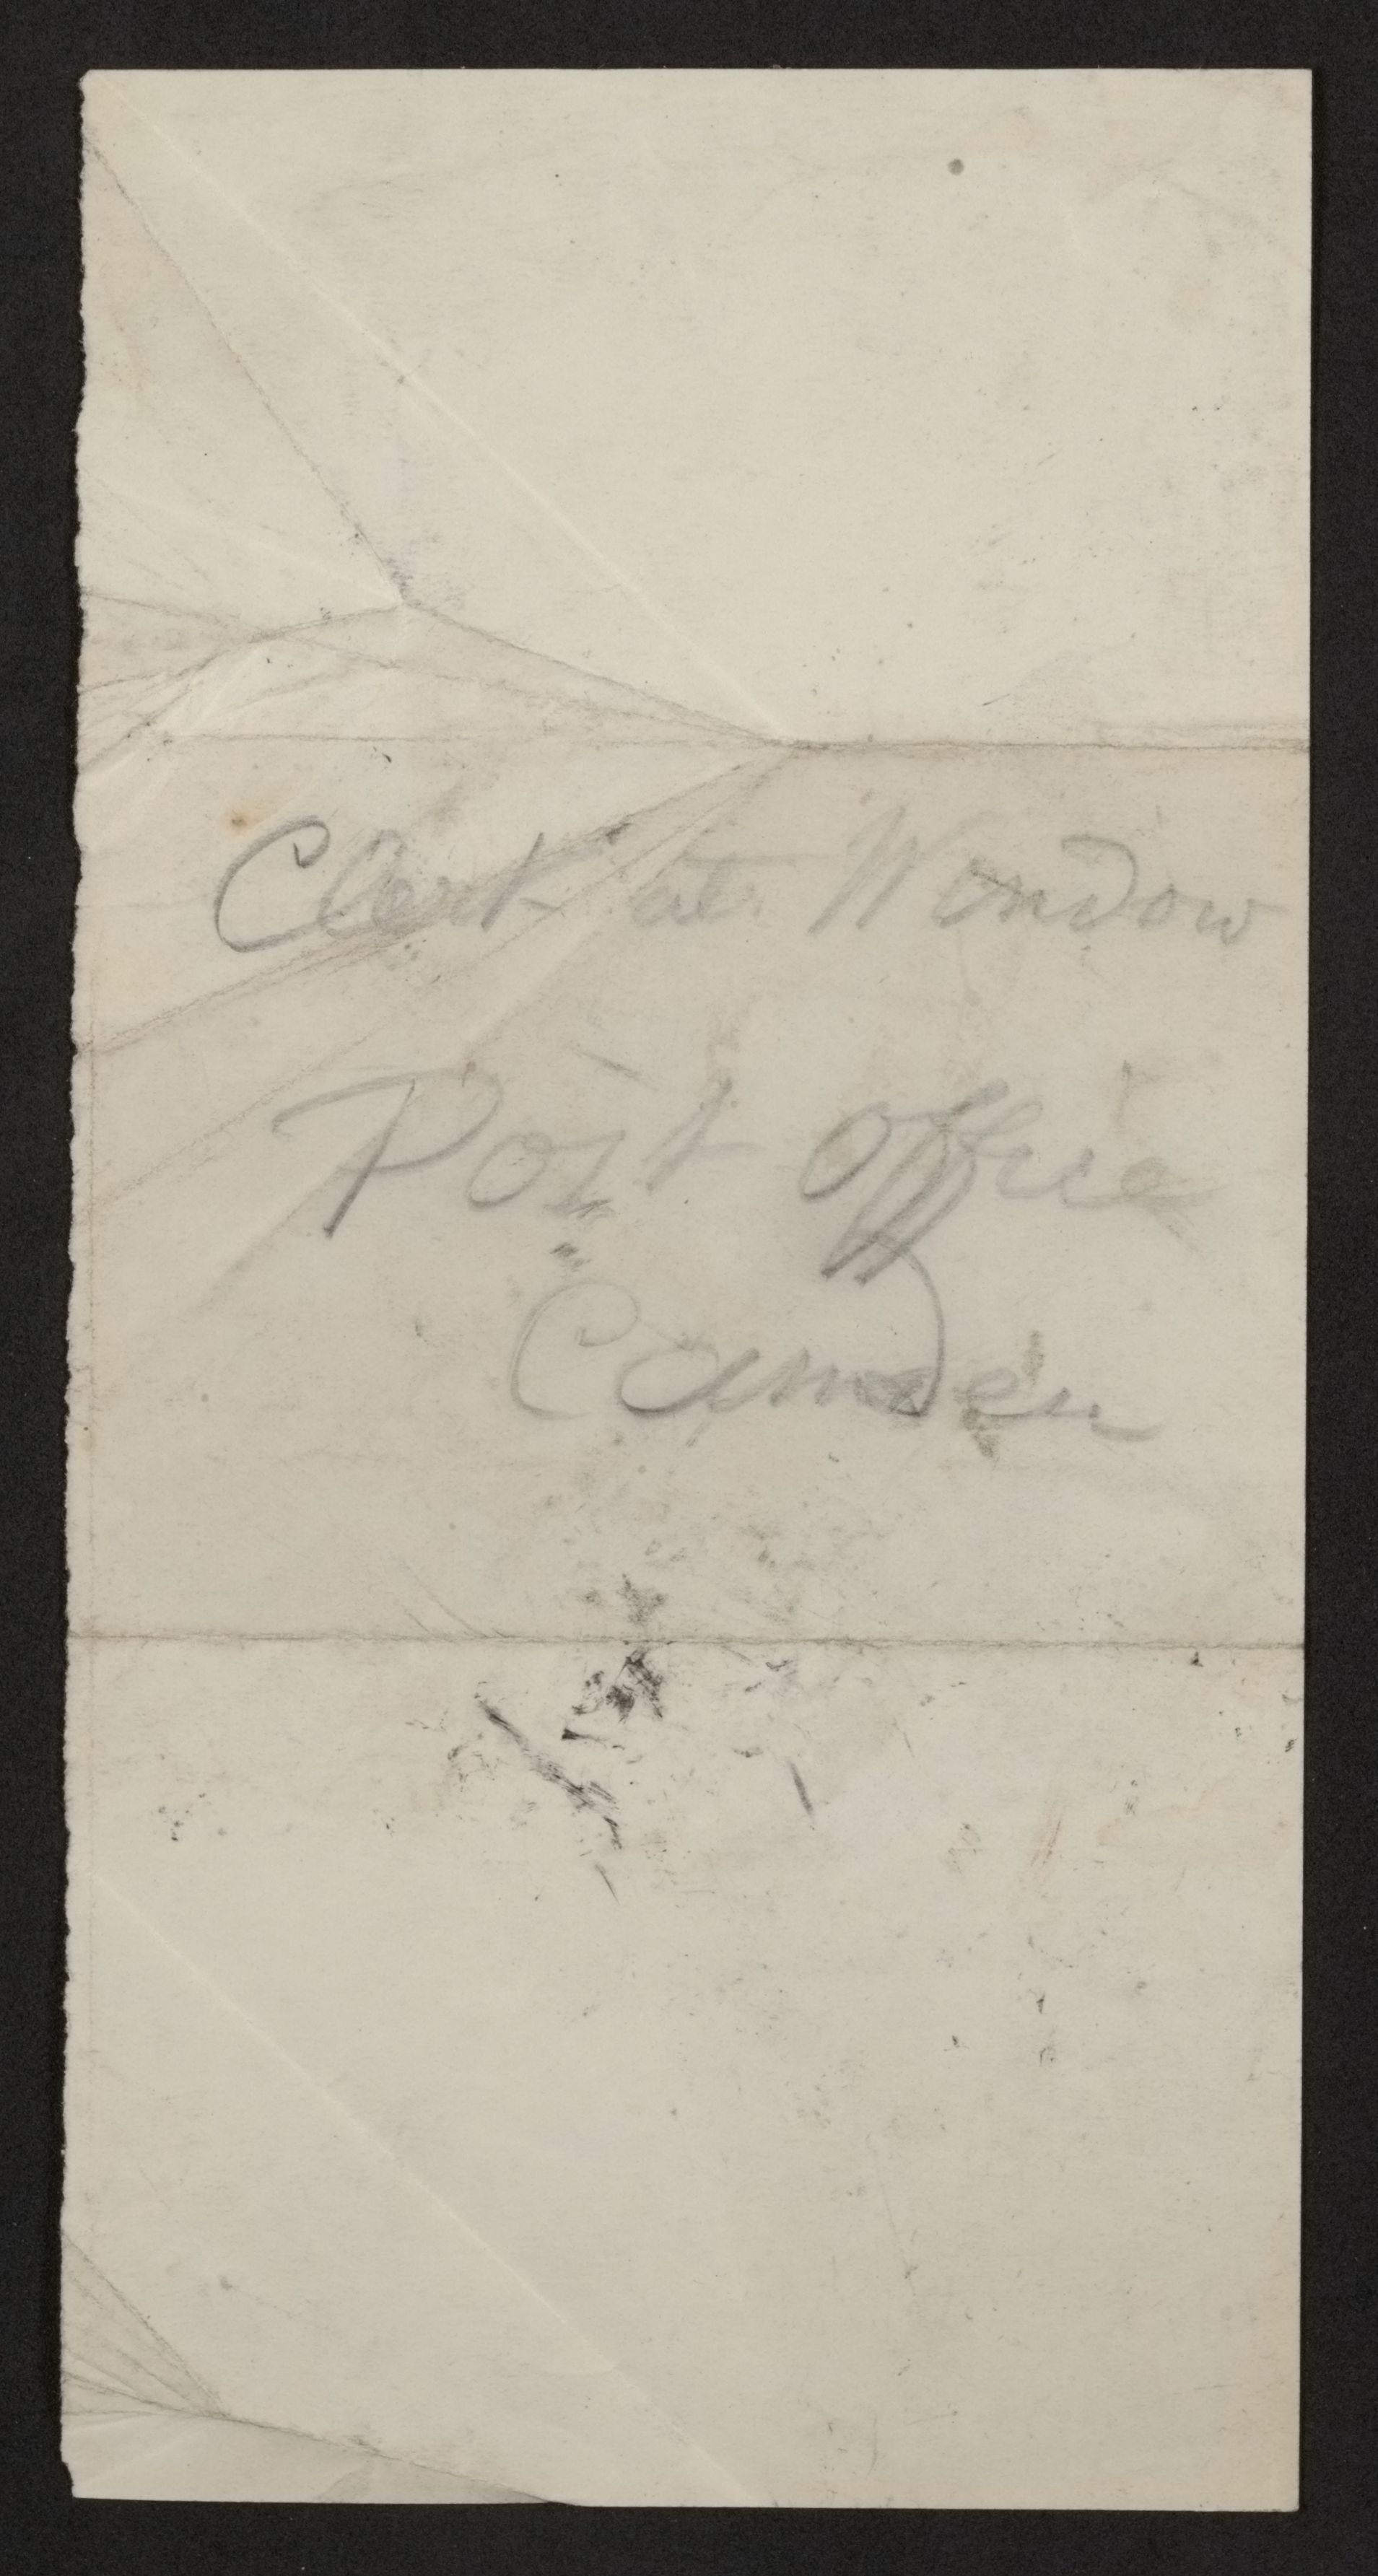 Clerk at Window
Post Office
Camden